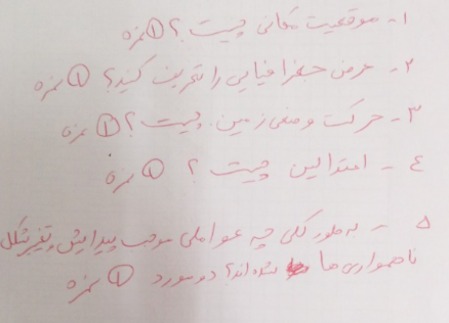 ۱- موقعیت مکانی چیست؟ ① نمره
۲- عرض جغرافیایی را تعریف کنید؟ ① نمره
۳- حرکت وضعی زمین چیست؟ ① نمره
٤- اعتدالین چیست؟ ① نمره
۵- به طور کلی چه عواملی موجب پیدایش و تغییر شکل
ناهمواری ها شده اند؟ دو مورد ① نمره